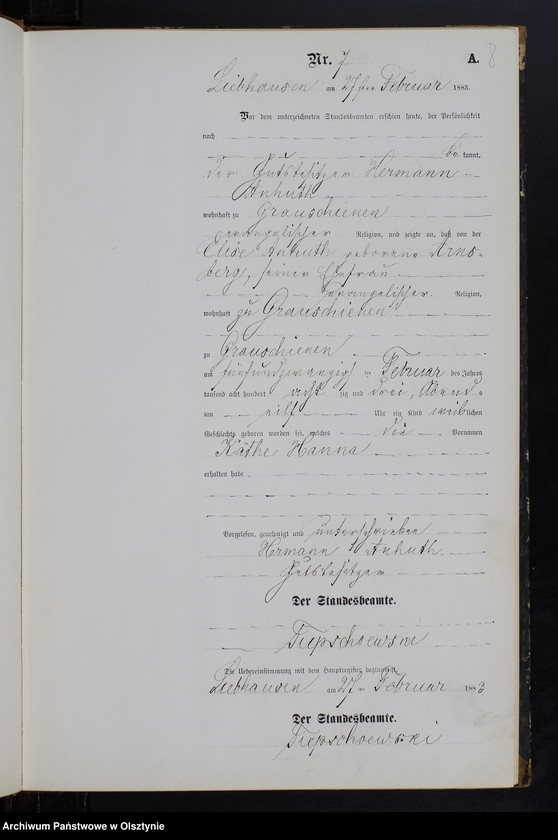 8
Nr. 7 A.
Liebhausen am 27sten Februar 1883.
Vor dem unterzeichneten Standesbeamten erschien heute, der Persönlichkeit
nach
be kannt,
der Gutsbesitzer Hermann
Anhuth
wohnhaft zu Grauschienen
evangelischer Religion, und zeigte an, daß von der
Elise Anhuth geborene Arns-
berg, seiner Ehefrau
evangelischer Religion,
wohnhaft zu Grauschienen
zu Grauschienen
am fünfundzwanzigsten Februar des Jahres
tausend acht hundert acht zig und drei, Abends
um eilf Uhr ein Kind weiblichen
Geschlechts geboren worden sei, welches die Vornamen
Käthe Hanna
erhalten habe.
Vorgelesen, genehmigt und unterschrieben
Hermann Anhuth
Gutsbesitzer
Der Standesbeamte.
Die Uebereinstimmung mit dem Hauptregister beglaubigt
Liebhausen am 27 ten Februar 1883
Der Standesbeamte.
Archiwum Państwowe w Olsztynie